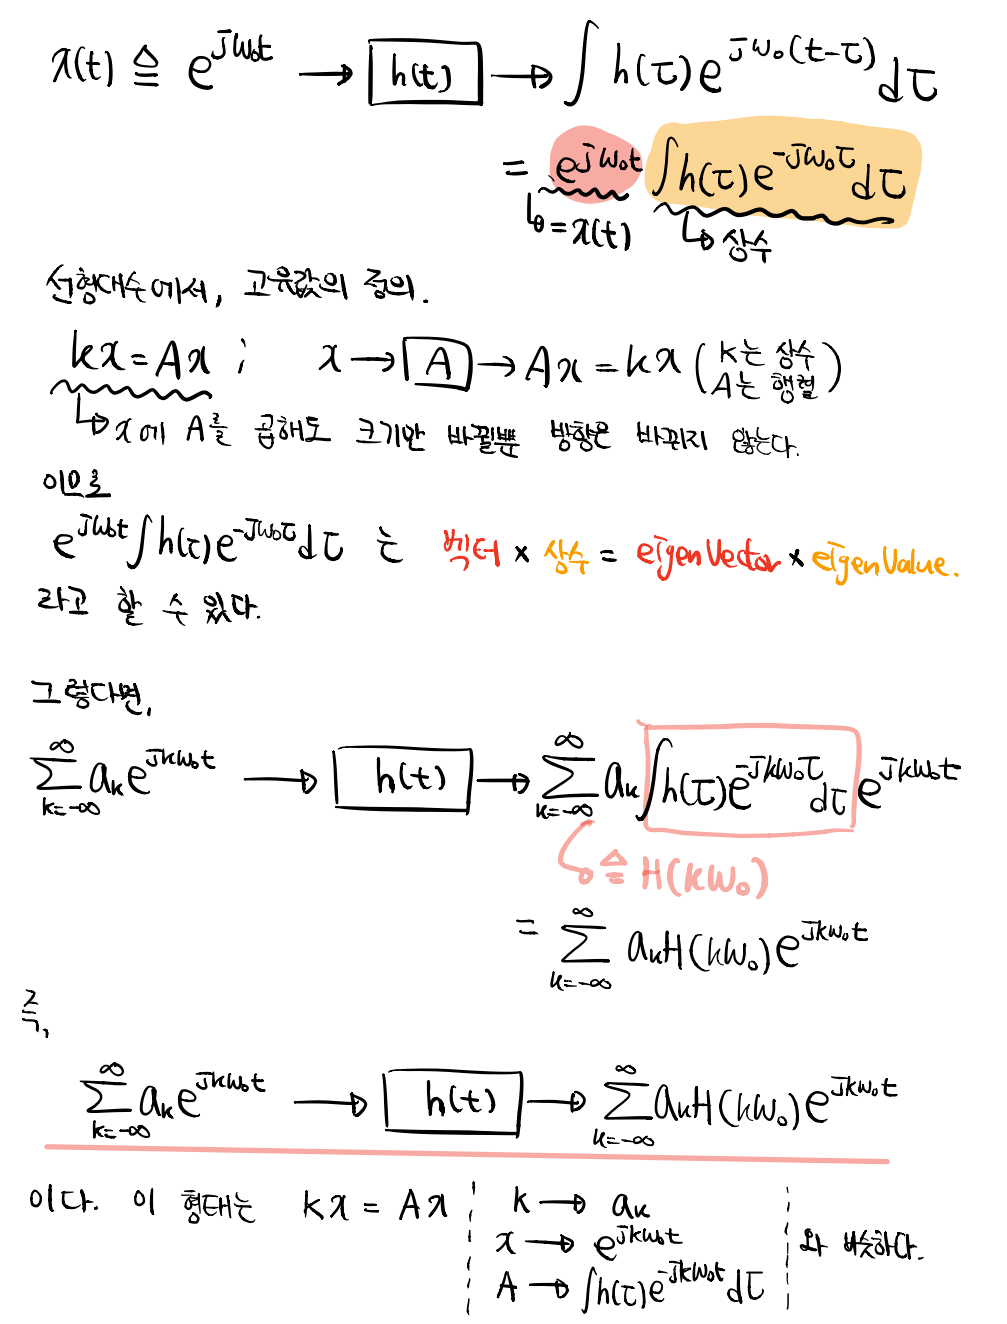 x(t) ≜ e^{jω₀t} → h(t) → ∫ h(τ) e^{jω₀(t-τ)} dτ
= e^{jω₀t} ∫ h(τ) e^{-jω₀τ} dτ
↳ = x(t) ↳ 상수
선형대수에서, 고유값의 정의.
kx = Ax ; x → A → Ax = kx ( k는 상수
A는 행렬 )
↳ x에 A를 곱해도 크기만 바뀔뿐 방향은 바뀌지 않는다.
이므로
e^{jω₀t} ∫ h(τ) e^{-jω₀τ} dτ 는 벡터 × 상수 = eigenVector × eigenValue.
라고 할 수 있다.
그렇다면,
∑_{k=-∞}^{∞} aₖ e^{jkω₀t} → h(t) → ∑_{k=-∞}^{∞} aₖ ∫ h(τ) e^{-jkω₀τ} dτ e^{jkω₀t}
↳ ≜ H(kω₀)
= ∑_{k=-∞}^{∞} aₖ H(kω₀) e^{jkω₀t}
즉,
∑_{k=-∞}^{∞} aₖ e^{jkω₀t} → h(t) → ∑_{k=-∞}^{∞} aₖ H(kω₀) e^{jkω₀t}
이다. 이 형태는 kx = Ax
k → aₖ
x → e^{jkω₀t}
A → ∫ h(τ) e^{-jkω₀t} dτ
와 비슷하다.